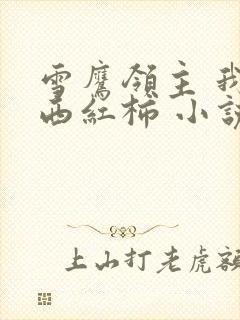 雪鹰領主 我
西紅柿 小説
上山打老虎額